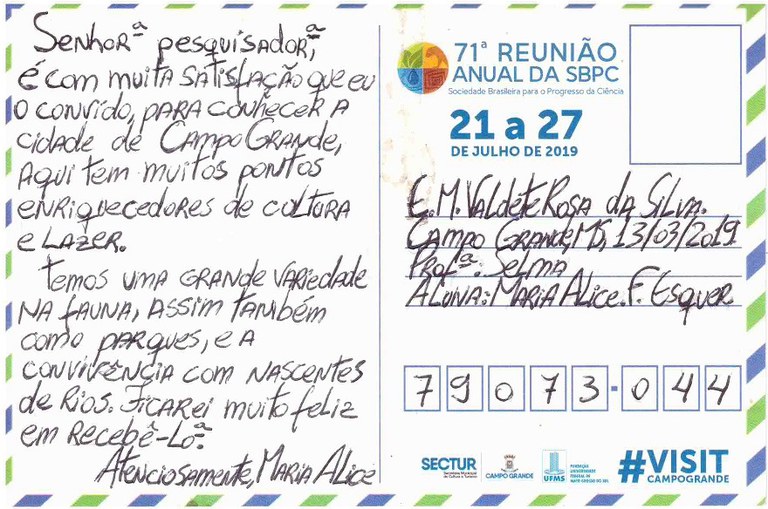 Senhorª pesquisadorª,
é com muita satisfação que eu
o convido, para conhecer a
cidade de Campo Grande,
Aqui tem muitos pontos
enriquecedores de cultura
e lazer.
Temos uma grande variedade
na fauna, assim também
como parques, e a
convivência com nascentes
de Rios. Ficarei muito feliz
em recebê-loª.
Atenciosamente, Maria Alice
71ª REUNIÃO
ANUAL DA SBPC
Sociedade Brasileira para o Progresso da Ciência
21 a 27
DE JULHO DE 2019
E. M. Valdete Rosa da Silva.
Campo Grande, MS, 13/03/2019
Profª: Selma
Aluna: Maria Alice. F. Esquer
79073-044
SECTUR
CAMPO GRANDE
UFMS
#VISIT
CAMPOGRANDE